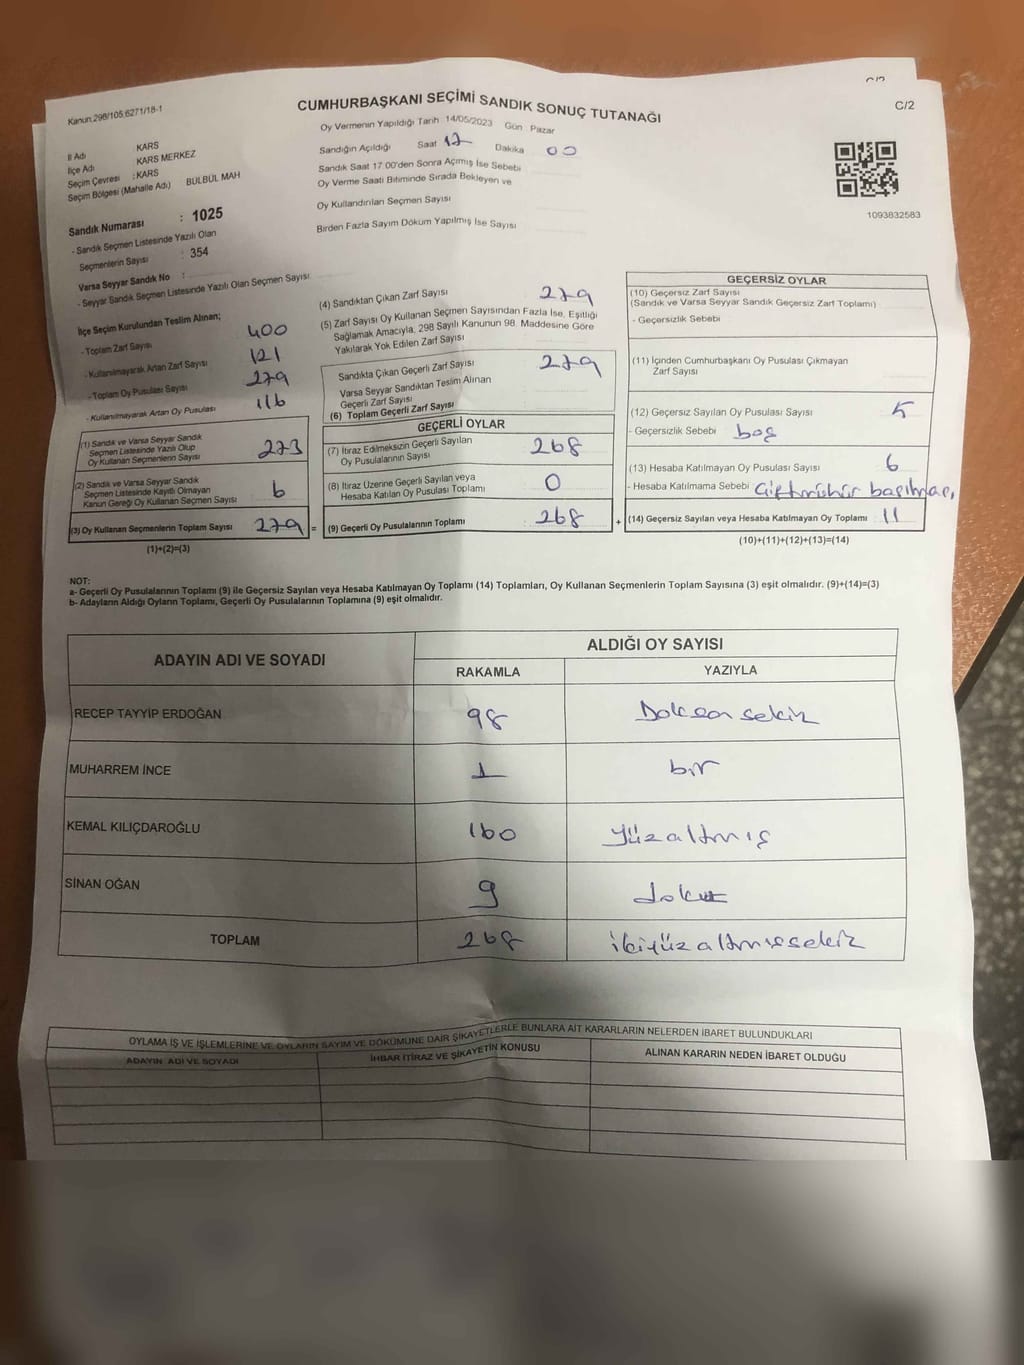 C/2
Kanun 298/105;6271/18-1
CUMHURBAŞKANI SEÇİMİ SANDIK SONUÇ TUTANAĞI
C/2
İl Adı KARS
İlçe Adı KARS MERKEZ
Seçim Çevresi :KARS
Seçim Bölgesi (Mahalle Adı) BÜLBÜL MAH
Sandık Numarası : 1025
- Sandık Seçmen Listesinde Yazılı Olan
Seçmenlerin Sayısı : 354
Varsa Seyyar Sandık No :
- Seyyar Sandık Seçmen Listesinde Yazılı Olan Seçmen Sayısı
Oy Vermenin Yapıldığı Tarih 14/05/2023 Gün Pazar
Sandığın Açıldığı Saat 17 Dakika 00
Sandık Saat 17:00'den Sonra Açımış İse Sebebi
Oy Verme Saati Bitiminde Sırada Bekleyen ve
Oy Kullandırılan Seçmen Sayısı
Birden Fazla Sayım Döküm Yapılmış İse Sayısı
1093832583
İlçe Seçim Kurulundan Teslim Alınan;
- Toplam Zarf Sayısı 400
- Kullanılmayarak Artan Zarf Sayısı 121
- Toplam Oy Pusulası Sayısı 279
- Kullanılmayarak Artan Oy Pusulası 116
(1) Sandık ve Varsa Seyyar Sandık
Seçmen Listesinde Yazılı Olup
Oy Kullanan Seçmenlerin Sayısı 273
(2) Sandık ve Varsa Seyyar Sandık
Seçmen Listesinde Kayıtlı Olmayan
Kanun Gereği Oy Kullanan Seçmen Sayısı 6
(3) Oy Kullanan Seçmenlerin Toplam Sayısı 279 =
(1)+(2)=(3)
(4) Sandıktan Çıkan Zarf Sayısı 279
(5) Zarf Sayısı Oy Kullanan Seçmen Sayısından Fazla İse, Eşitliği
Sağlamak Amacıyla, 298 Sayılı Kanunun 98. Maddesine Göre
Yakılarak Yok Edilen Zarf Sayısı
Sandıkta Çıkan Geçerli Zarf Sayısı 279
Varsa Seyyar Sandıktan Teslim Alınan
Geçerli Zarf Sayısı
(6) Toplam Geçerli Zarf Sayısı
GEÇERLİ OYLAR
(7) İtiraz Edilmeksizin Geçerli Sayılan
Oy Pusulalarının Sayısı 268
(8) İtiraz Üzerine Geçerli Sayılan veya
Hesaba Katılan Oy Pusulası Toplamı 0
(9) Geçerli Oy Pusulalarının Toplamı 268 +
GEÇERSİZ OYLAR
(10) Geçersiz Zarf Sayısı
(Sandık ve Varsa Seyyar Sandık Geçersiz Zarf Toplamı)
- Geçersizlik Sebebi
(11) İçinden Cumhurbaşkanı Oy Pusulası Çıkmayan
Zarf Sayısı
(12) Geçersiz Sayılan Oy Pusulası Sayısı 5
- Geçersizlik Sebebi boş
(13) Hesaba Katılmayan Oy Pusulası Sayısı 6
- Hesaba Katılmama Sebebi
(14) Geçersiz Sayılan veya Hesaba Katılmayan Oy Toplamı 11
(10)+(11)+(12)+(13)=(14)
NOT:
a- Geçerli Oy Pusulalarının Toplamı (9) ile Geçersiz Sayılan veya Hesaba Katılmayan Oy Toplamı (14) Toplamları, Oy Kullanan Seçmenlerin Toplam Sayısına (3) eşit olmalıdır. (9)+(14)=(3)
b- Adayların Aldığı Oyların Toplamı, Geçerli Oy Pusulalarının Toplamına (9) eşit olmalıdır.
ADAYIN ADI VE SOYADI ALDIĞI OY SAYISI
RAKAMLA YAZIYLA
RECEP TAYYİP ERDOĞAN 98 Doksan sekiz
MUHARREM İNCE 1 bir
KEMAL KILIÇDAROĞLU 160 Yüzaltmış
SİNAN OĞAN 9 dokuz
TOPLAM 268 ikiyüz altmışsekiz
OYLAMA İŞ VE İŞLEMLERİNE VE OYLARIN SAYIM VE DÖKÜMÜNE DAİR ŞİKAYETLERLE BUNLARA AİT KARARLARIN NELERDEN İBARET BULUNDUKLARI
ADAYIN ADI VE SOYADI İHBAR İTİRAZ VE ŞİKAYETİN KONUSU ALINAN KARARIN NEDEN İBARET OLDUĞU